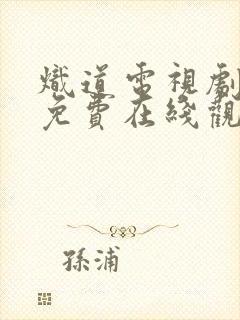 熾道電視劇
免費在綫觀
孫浦